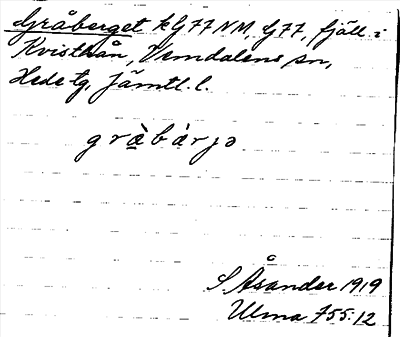 Gråberget k G77 NM, G77, fjäll i
Kvisthån, Vemdalens sn,
Hede tg, Jämtl. l.
gràbárjə
S Åsander 1919
Ulma 755:12